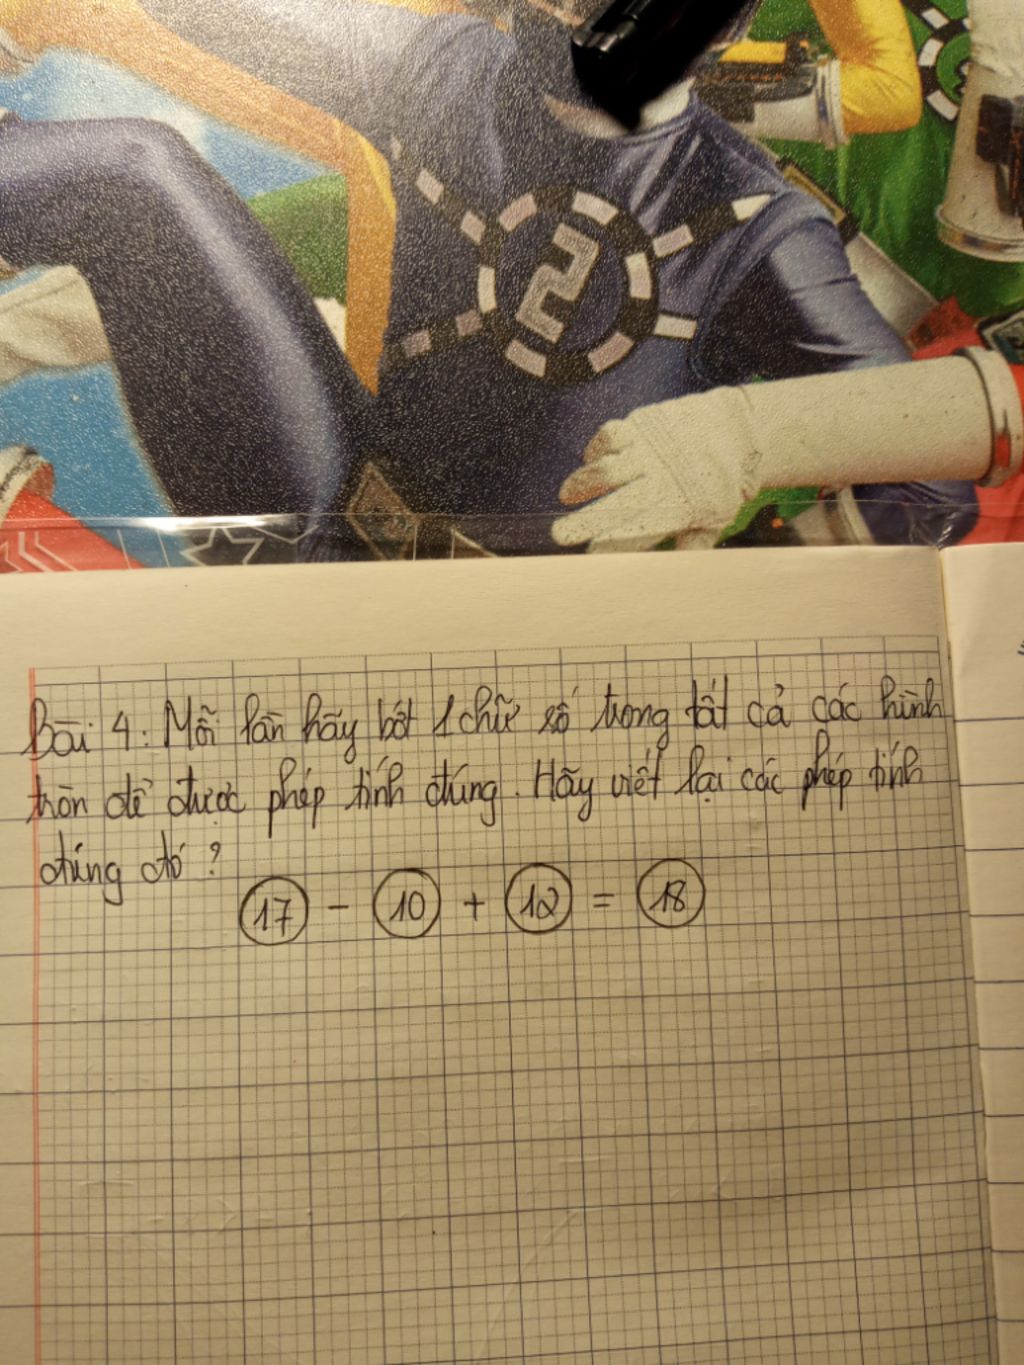 2
Bài 4: Mỗi lần hãy bớt 1 chữ số trong tất cả các hình
tròn để được phép tính đúng. Hãy viết lại các phép tính
đúng đó ?
17 - 10 + 12 = 18